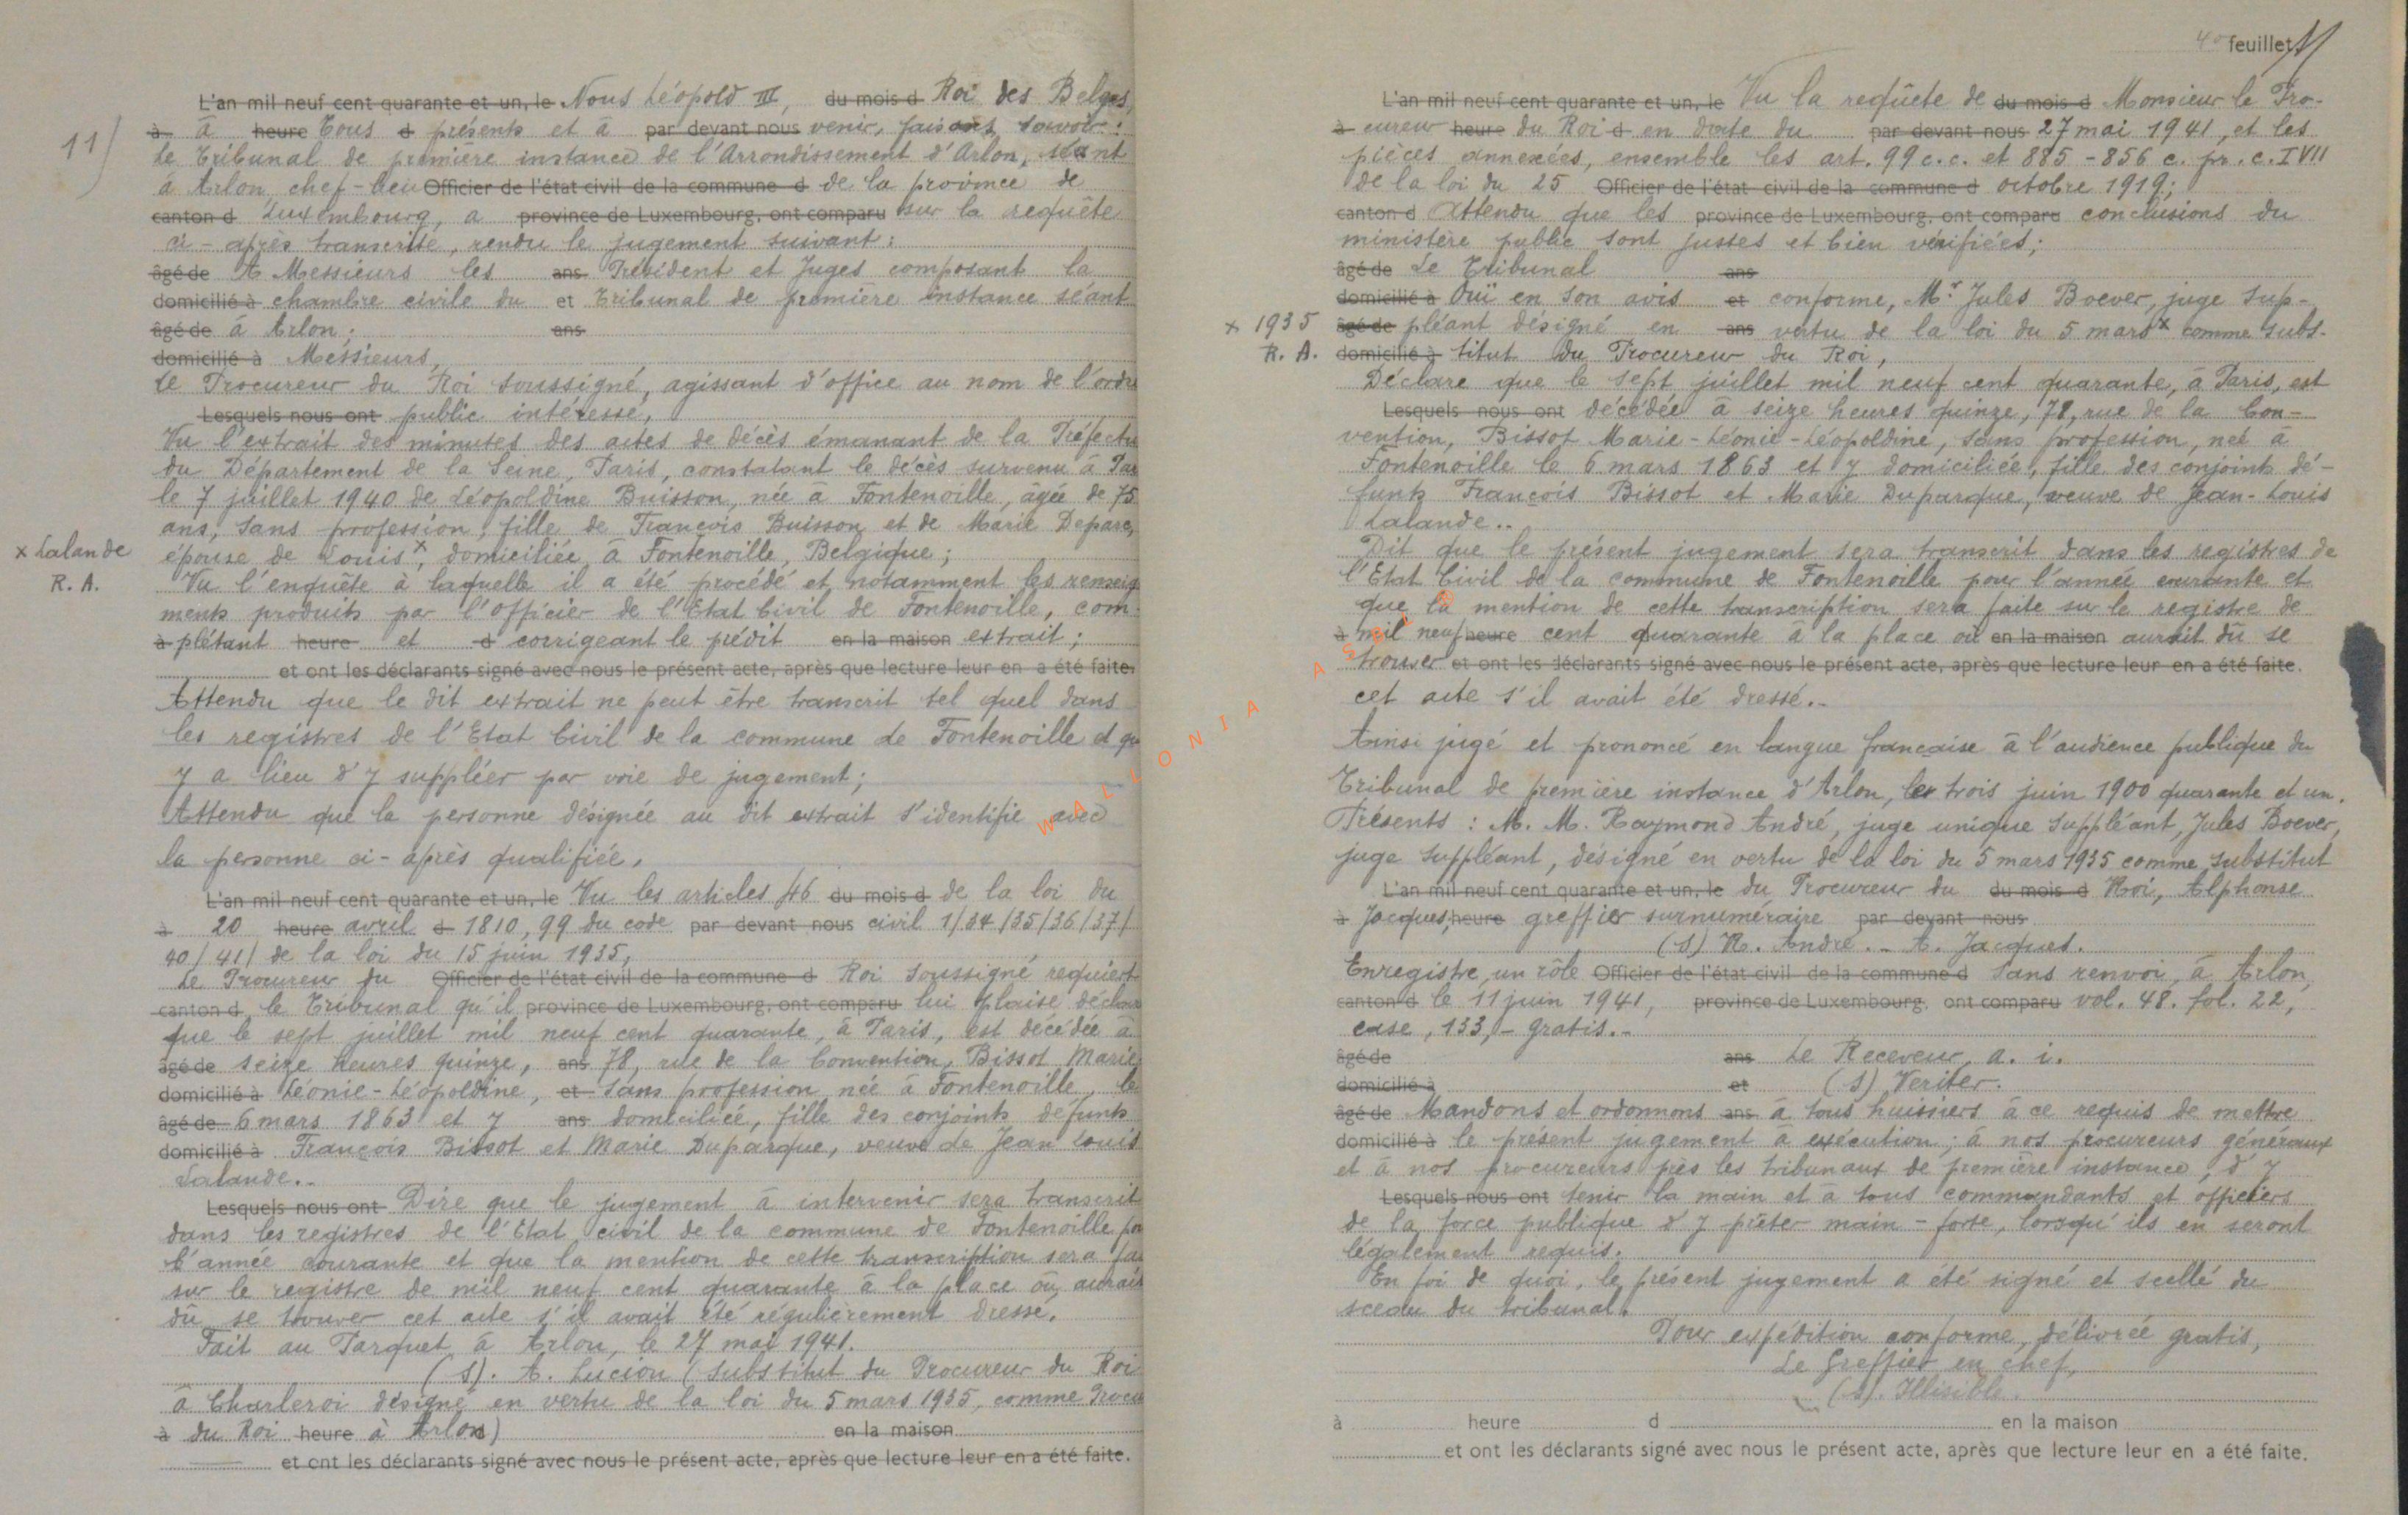 11)
L'an mil neuf cent quarante et un, le Nous Léopold III, du mois d Roi des Belges,
à à heure tous d présents et à par devant nous venir, faisons savoir :
Le Tribunal de première instance de l'Arrondissement d'Arlon, séant
à Arlon chef-lieu Officier de l'état civil de la commune d de la province de
canton d Luxembourg, a province de Luxembourg, ont comparu sur la requête
ci-après transcrite, rendu le jugement suivant :
âgé de A Messieurs les ans Président et Juges composant la
domicilié à chambre civile du et Tribunal de première instance séant
âgé de à Arlon; ans
domicilié à Messieurs,
Le Procureur du Roi soussigné, agissant d'office au nom de l'ordre
Lesquels nous ont public intéressé,
Vu l'extrait des minutes des actes de décès émanant de la Préfectu
du Département de la Seine, Paris, constatant le décès survenu à Par
le 7 juillet 1940 de Léopoldine Buisson, née à Fontenoille, âgée de 75
ans, sans profession, fille de François Buisson et de Marie Deparc,
épouse de Louis x, domiciliée à Fontenoille, Belgique;
x Lalande
R. A.
Vu l'enquête à laquelle il a été procédé et notamment les renseig
ments produits par l'officier de l'Etat Civil de Fontenoille, com-
à plétant heure et d corrigeant le prédit en la maison extrait;
et ont les déclarants signé avec nous le présent acte, après que lecture leur en a été faite.
Attendu que le dit extrait ne peut être transcrit tel quel dans
les registres de l'Etat Civil de la commune de Fontenoille et qu
y a lieu d'y suppléer par voie de jugement;
Attendu que la personne désignée au dit extrait s'identifie avec
la personne ci-après qualifiée,
L'an mil neuf cent quarante et un, le Vu les articles 46 du mois d de la loi du
à 20 heure avril d 1810, 99 du code par devant nous civil 1/34/35/36/37/
40/41/ de la loi du 15 juin 1935,
Le Procureur du Officier de l'état civil de la commune d Roi soussigné requiert
canton d le Tribunal qu'il province de Luxembourg, ont comparu lui plaise déclarer
que le sept juillet mil neuf cent quarante, à Paris, est décédée à
âgé de seize heures quinze, ans 78, rue de la Convention, Bissot Marie
domicilié à Léonie-Léopoldine, et sans profession née à Fontenoille, le
âgé de 6 mars 1863 et y ans domiciliée, fille des conjoints défunts
domicilié à François Bissot et Marie Duparque, veuve de Jean Louis
Lalande.-
Lesquels nous ont Dire que le jugement à intervenir sera transcrit
dans les registres de l'Etat civil de la commune de Fontenoille po
l'année courante et que la mention de cette transcription sera fai
sur le registre de mil neuf cent quarante à la place où aurait
dû se trouver cet acte s'il avait été régulièrement dressé.
Fait au Parquet à Arlon, le 27 mai 1941.
(s). A. Lucion (substitut du Procureur du Roi
à Charleroi désigné en vertu de la loi du 5 mars 1935, comme Procu
à du Roi heure à Arlon) en la maison
et ont les déclarants signé avec nous le présent acte, après que lecture leur en a été faite.
40 feuillet
L'an mil neuf cent quarante et un, le Vu la requête de du mois d Monsieur le Pro-
à cureur heure du Roi d en date du par devant nous 27 mai 1941, et les
pièces annexées, ensemble les art. 99 c.c. et 885-856 c. pr. c. IVII
de la loi du 25 Officier de l'état civil de la commune d octobre 1919;
canton d Attendu que les province de Luxembourg, ont comparu conclusions du
ministère public sont justes et bien vérifiées;
âgé de Le Tribunal ans
domicilié à Ouï en son avis et conforme, Mr. Jules Boever, juge sup-
âgé de pléant désigné en ans vertu de la loi du 5 mars x comme subs-
x 1935
R. A.
domicilié à titut du Procureur du Roi,
Déclare que le sept juillet mil neuf cent quarante, à Paris, est
Lesquels nous ont décédée à seize heures quinze, 78, rue de la Con-
vention, Bissot Marie-Léonie-Léopoldine, sans profession, née à
Fontenoille le 6 mars 1863 et y domiciliée, fille des conjoints dé-
funts François Bissot et Marie Duparque, veuve de Jean-Louis
Lalande..
Dit que le présent jugement sera transcrit dans les registres de
l'Etat Civil de la commune de Fontenoille pour l'année courante et
que la mention de cette transcription sera faite sur le registre de
à mil neuf heure cent quarante à la place où en la maison aurait dû se
trouver et ont les déclarants signé avec nous le présent acte, après que lecture leur en a été faite.
cet acte s'il avait été dressé.-
Ainsi jugé et prononcé en langue française à l'audience publique du
Tribunal de première instance d'Arlon, le trois juin 1900 quarante et un.
Présents : M. M. Raymond André, juge unique suppléant, Jules Boever,
juge suppléant, désigné en vertu de la loi du 5 mars 1935 comme substitut
L'an mil neuf cent quarante et un, le du Procureur du du mois d Roi, Alphonse
à Jacques, heure greffier surnuméraire par devant nous
(s) R. André.- A. Jacques.
Enregistré, un rôle Officier de l'état civil de la commune d sans renvoi, à Arlon,
canton d le 11 juin 1941, province de Luxembourg, ont comparu vol. 48. fol. 22,
case, 133,- gratis.-
âgé de ans Le Receveur, a. i.
domicilié à et (s) Veriter.
âgé de Mandons et ordonnons ans à tous huissiers à ce requis de mettre
domicilié à le présent jugement à exécution; à nos procureurs généraux
et à nos procureurs près les tribunaux de première instance, d'y
Lesquels nous ont tenir la main et à tous commandants et officiers
de la force publique d'y prêter main-forte, lorsqu'ils en seront
légalement requis.
En foi de quoi, le présent jugement a été signé et scellé du
sceau du tribunal.
Pour expédition conforme, délivrée gratis,
Le Greffier en chef,
(s). Illisible.
à heure d en la maison
et ont les déclarants signé avec nous le présent acte, après que lecture leur en a été faite.
WALLONIA